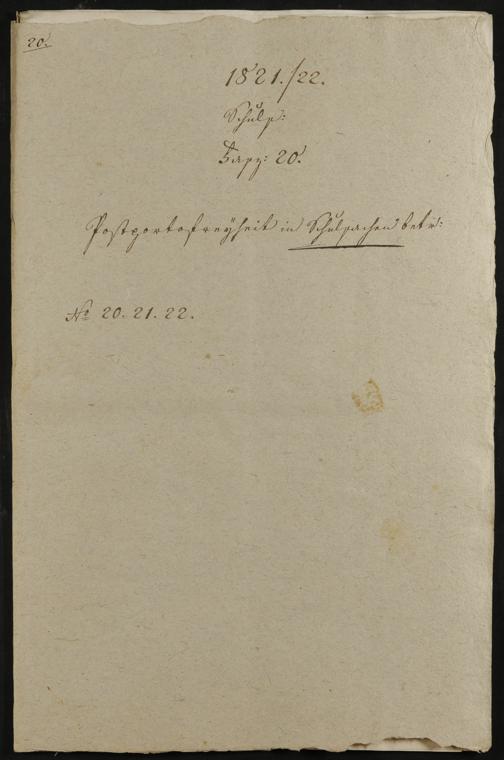 20.
1821./22.
Schulf:
Fasz: 20.
Postportofreyheit in Schulsachen betr:
No 20. 21. 22.